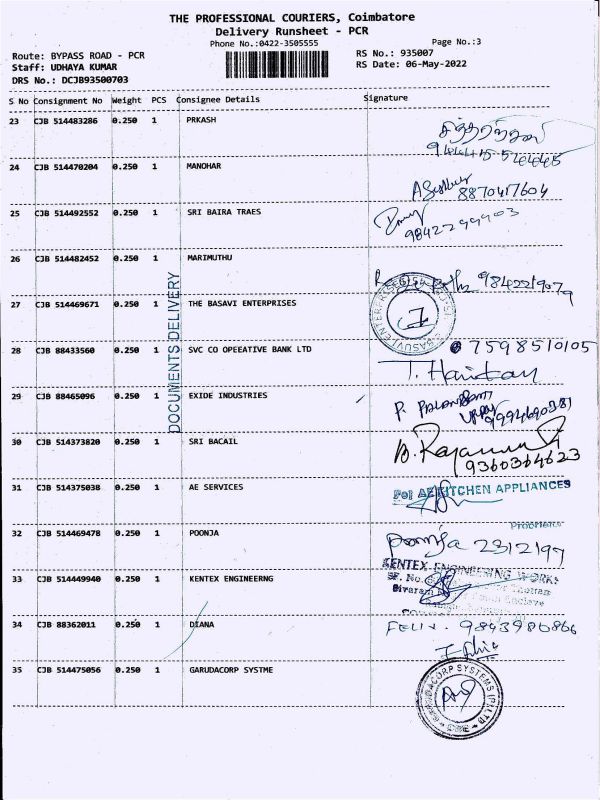 THE PROFESSIONAL COURIERS, Coimbatore
Delivery Runsheet - PCR
Phone No.:0422-3505555
Page No.:3
Route: BYPASS ROAD - PCR
Staff: UDHAYA KUMAR
DRS No.: DCJB93500703
RS No.: 935007
RS Date: 06-May-2022
S No Consignment No Weight PCS Consignee Details Signature
23 CJB 514483286 0.250 1 PRKASH
24 CJB 514470204 0.250 1 MANOHAR
8870417604
25 CJB 514492552 0.250 1 SRI BAIRA TRAES
9842299903
26 CJB 514482452 0.250 1 MARIMUTHU
9842219079
DOCUMENTS DELIVERY
27 CJB 514469671 0.250 1 THE BASAVI ENTERPRISES
28 CJB 88433560 0.250 1 SVC CO OPEEATIVE BANK LTD
7598510105
29 CJB 88465096 0.250 1 EXIDE INDUSTRIES
30 CJB 514373820 0.250 1 SRI BACAIL
31 CJB 514375038 0.250 1 AE SERVICES
For AE KITCHEN APPLIANCES
32 CJB 514469478 0.250 1 POONJA
Poomja 2312197
33 CJB 514449940 0.250 1 KENTEX ENGINEERNG
KENTEX ENGINEERING WORKS
34 CJB 88362011 0.250 1 DIANA
FELIX. 9843980866
35 CJB 514475056 0.250 1 GARUDACORP SYSTME
GARUDACORP SYSTEMS (P) LTD
CBE